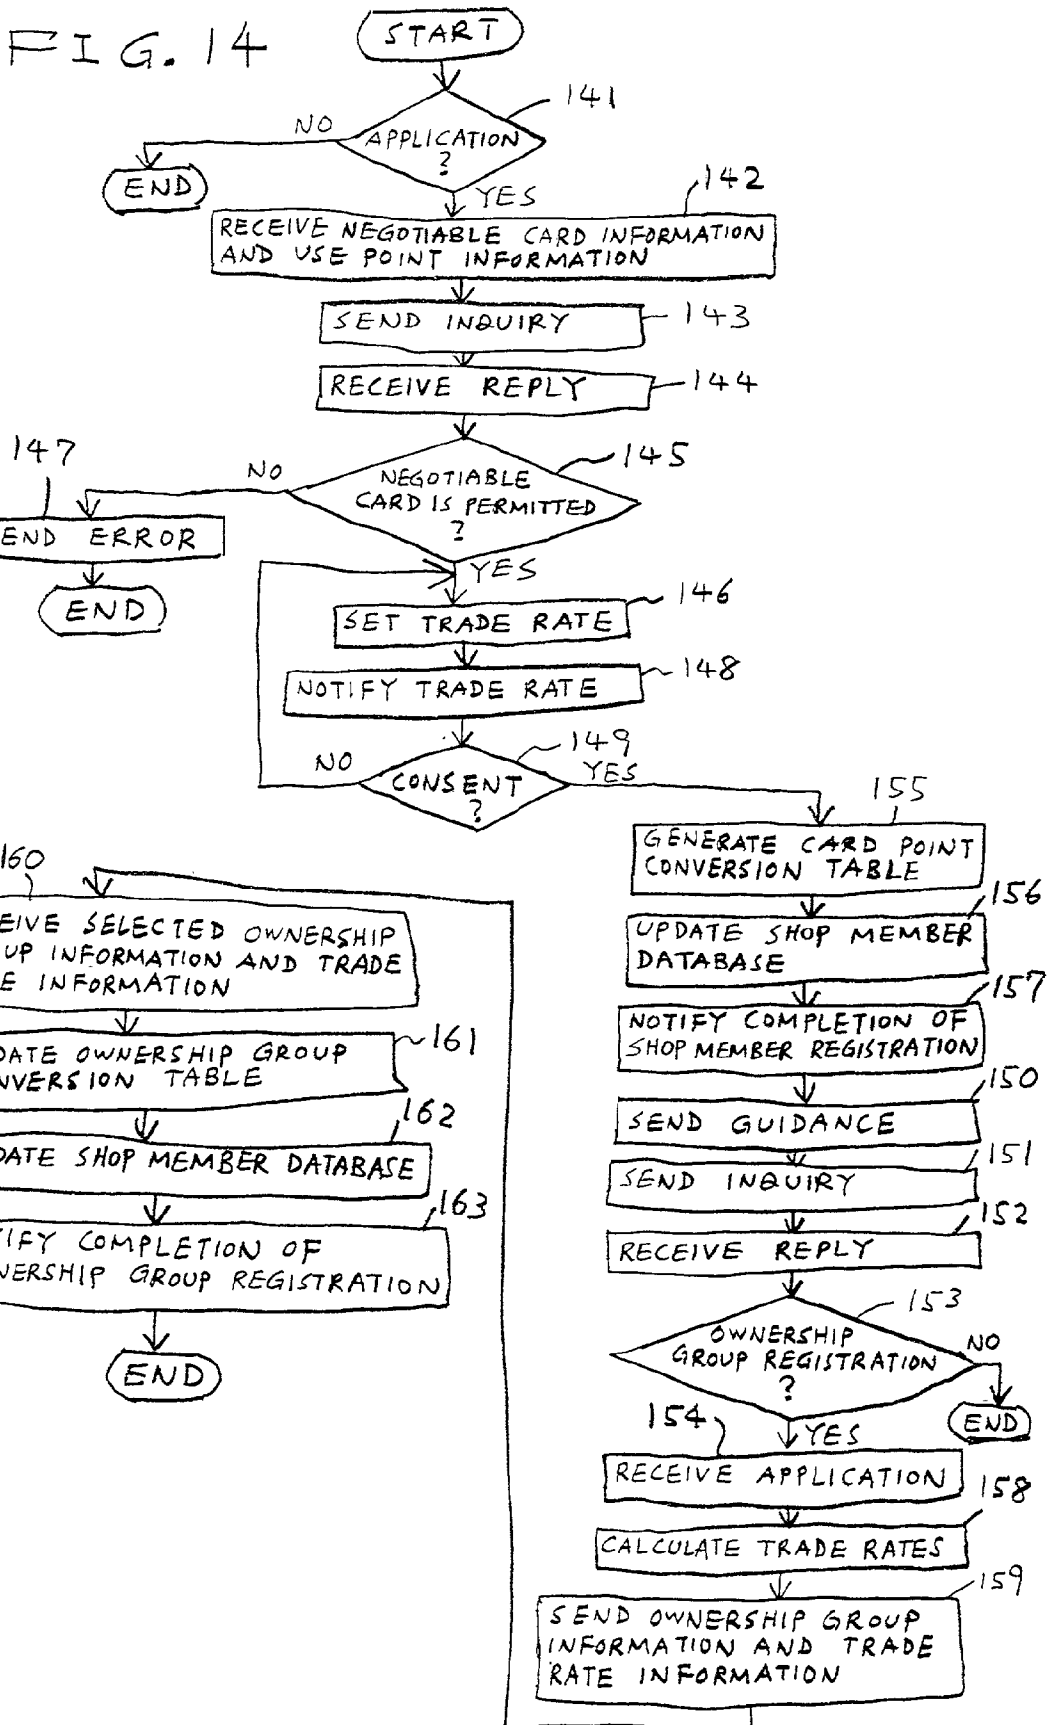 FIG. 14
START
141
APPLICATION
?
NO
END
YES
142
RECEIVE NEGOTIABLE CARD INFORMATION
AND USE POINT INFORMATION
SEND INQUIRY
143
RECEIVE REPLY
144
145
NEGOTIABLE
CARD IS PERMITTED
?
NO
147
END ERROR
END
YES
146
SET TRADE RATE
148
NOTIFY TRADE RATE
149
CONSENT
?
NO
YES
155
GENERATE CARD POINT
CONVERSION TABLE
156
UPDATE SHOP MEMBER
DATABASE
157
NOTIFY COMPLETION OF
SHOP MEMBER REGISTRATION
150
SEND GUIDANCE
151
SEND INQUIRY
152
RECEIVE REPLY
153
OWNERSHIP
GROUP REGISTRATION
?
NO
END
YES
154
RECEIVE APPLICATION
158
CALCULATE TRADE RATES
159
SEND OWNERSHIP GROUP
INFORMATION AND TRADE
RATE INFORMATION
160
EIVE SELECTED OWNERSHIP
UP INFORMATION AND TRADE
E INFORMATION
161
DATE OWNERSHIP GROUP
NVERSION TABLE
162
DATE SHOP MEMBER DATABASE
163
IFY COMPLETION OF
NERSHIP GROUP REGISTRATION
END